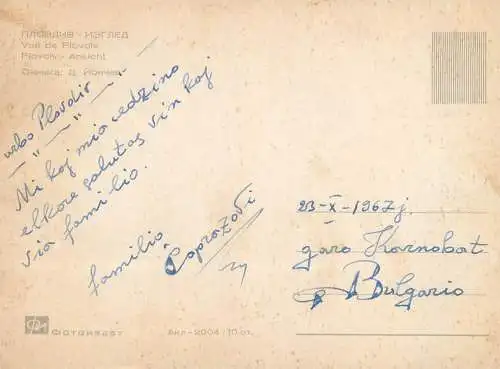 ПЛОВДИВ - ИЗГЛЕД
Vue de Plovdiv
Plovdiv - Ansicht
urbo Plovdiv
Mi kaj mia edzino
elkore salutas vin kaj
via familio.
familio
23-X-1967 j.
garo Karnobat
Bulgario
Фотоиздат
Акл-2004 / 10 ст.